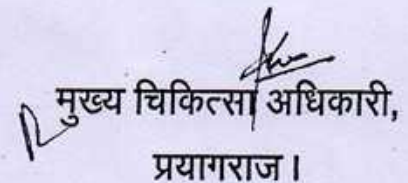 मुख्य चिकित्सा अधिकारी,
प्रयागराज।